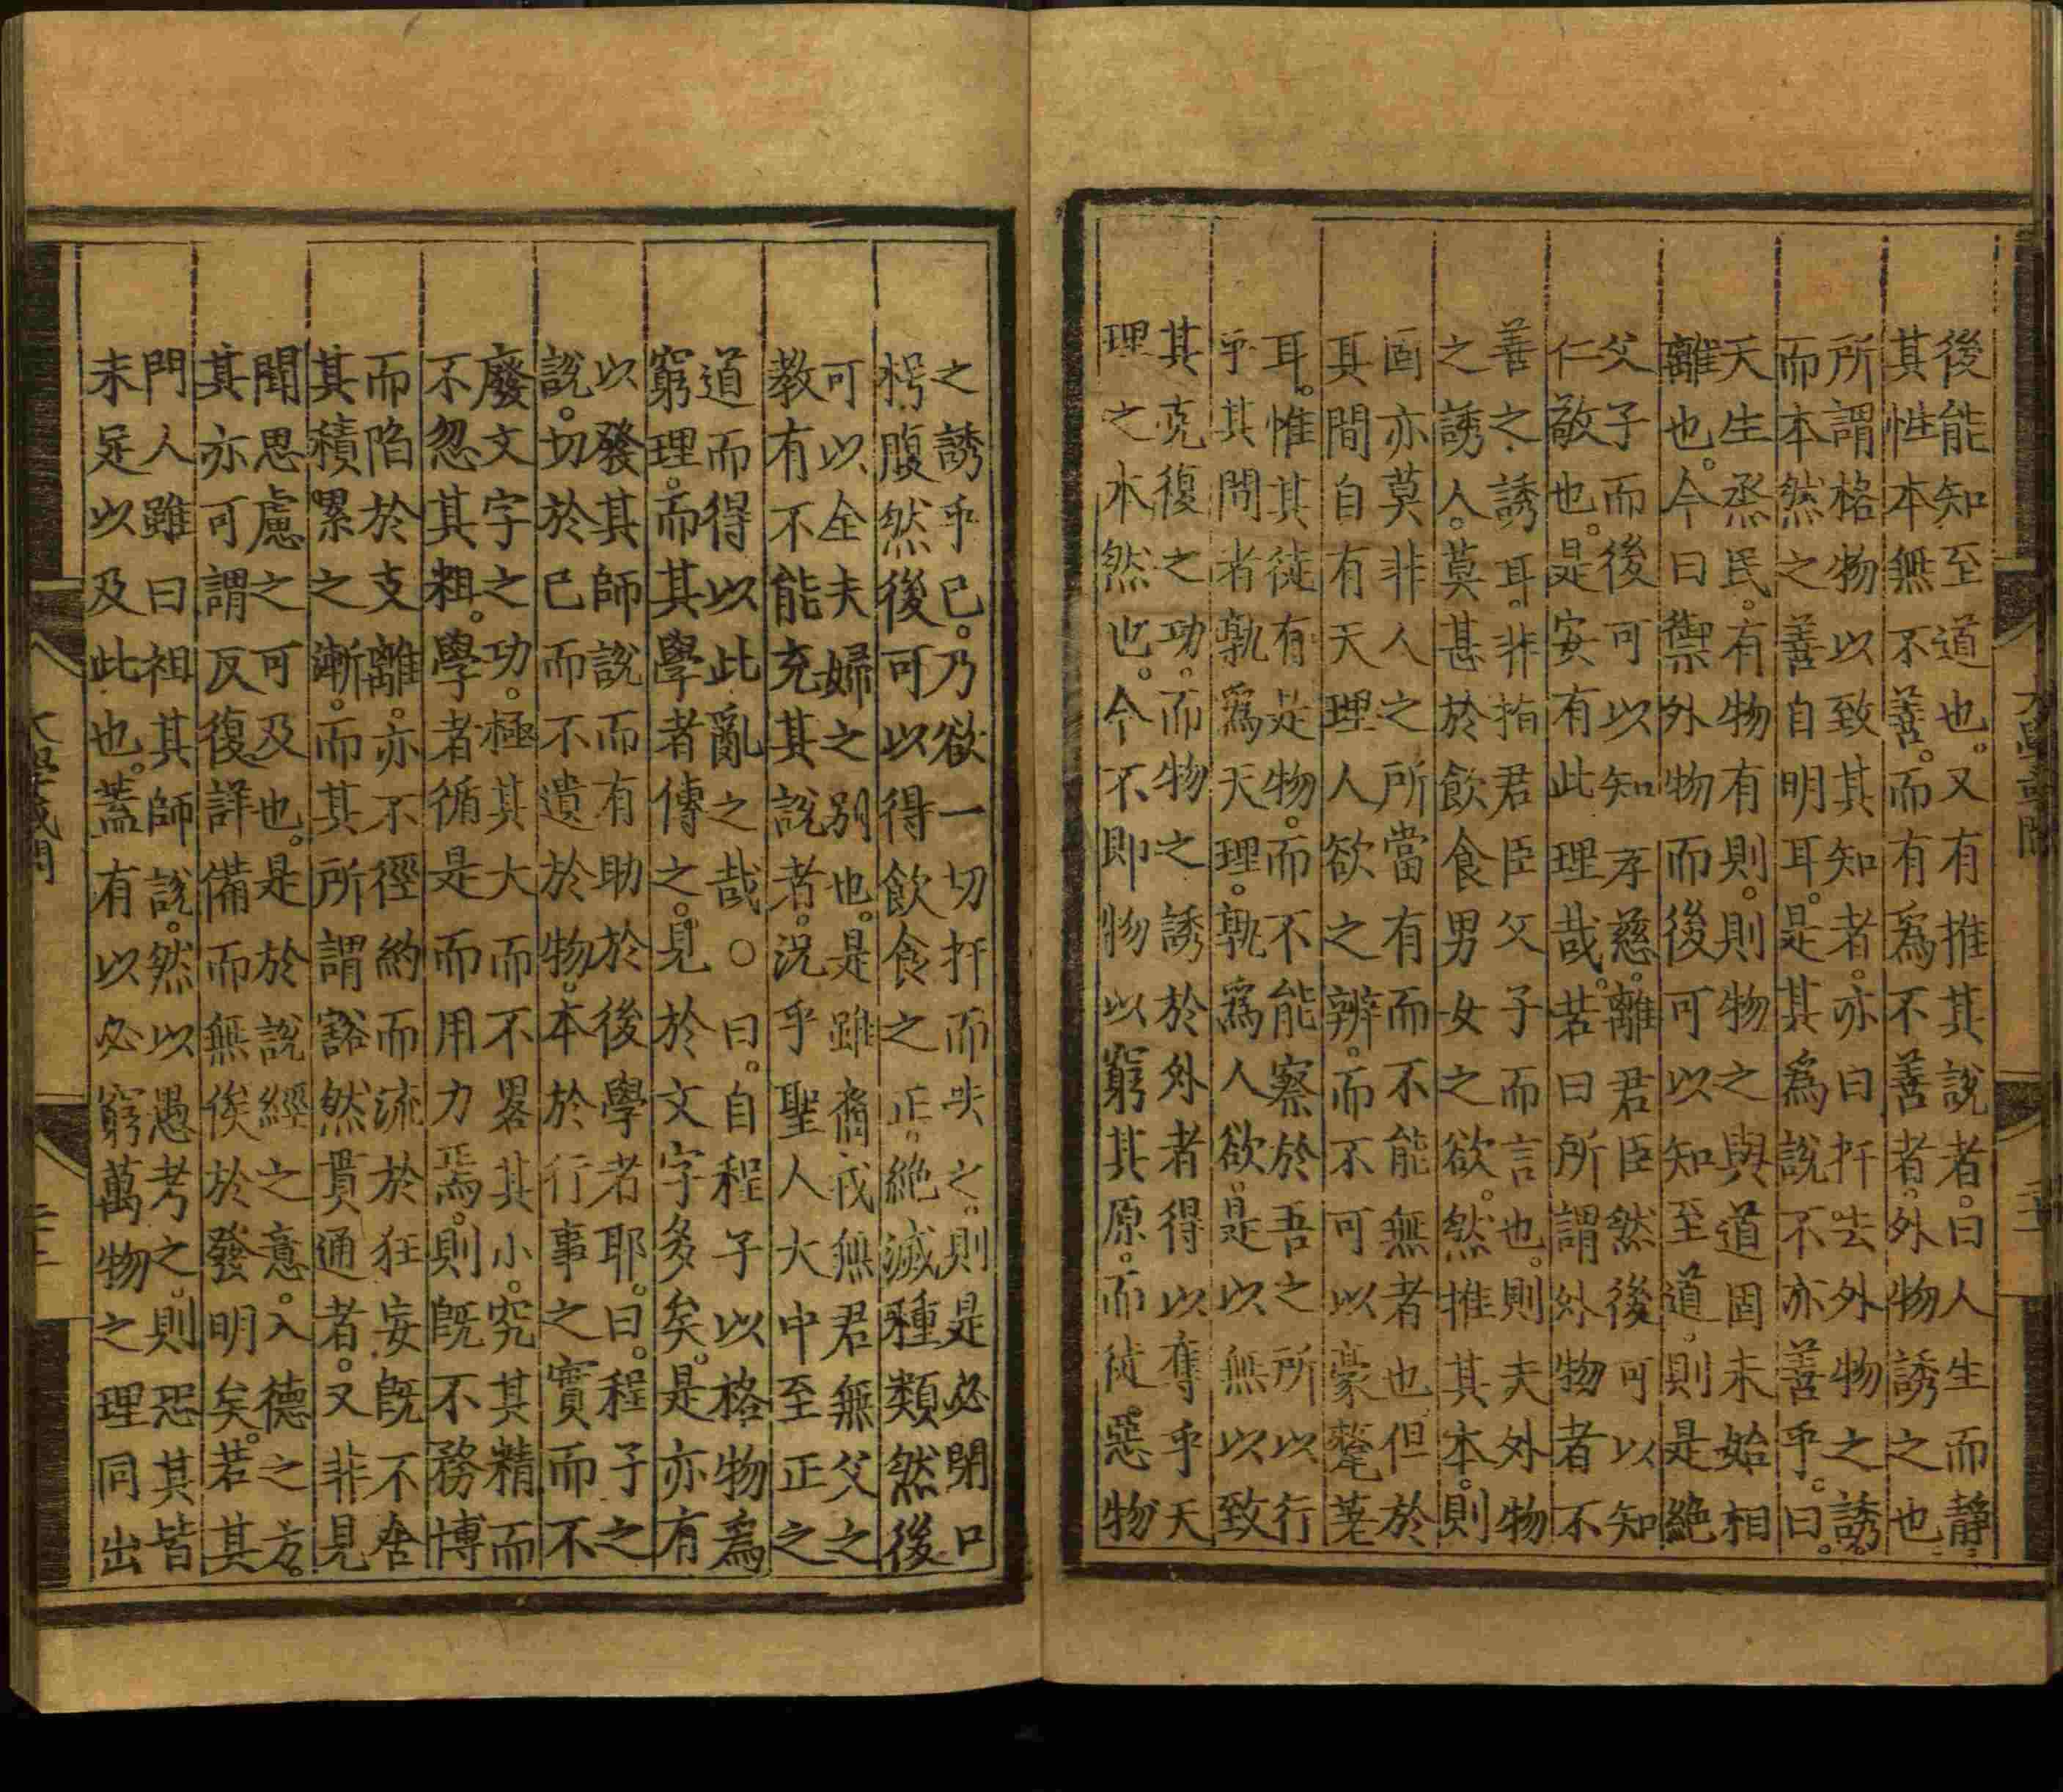 大學或問
後能知至道也。又有推其說者。曰人生而靜
其性本無不善。而有爲不善者。外物誘之也
所謂格物以致其知者。亦曰扞去外物之誘。
而本然之善自明耳。是其爲說不亦善乎。曰。
天生烝民。有物有則。則物之與道固未始相
離也。今曰禦外物而後可以知至道。則是絶
父子而後可以知孝慈。離君臣然後可以知
仁敬也。是安有此理哉。若曰所謂外物者不
善之誘耳。非指君臣父子而言也。則夫外物
之誘人。莫甚於飮食男女之欲。然推其本。則
固亦莫非人之所當有而不能無者也。但於
其間自有天理人欲之辨。而不可以豪釐差
耳。惟其徒有是物。而不能察於吾之所以行
乎其間者孰爲天理。孰爲人欲。是以無以致
其克復之功。而物之誘於外者得以奪乎天
理之本然也。今不即物以窮其原。而徒惡物
之誘乎己。乃欲一切扞而去之。則是必閉口
枵腹然後可以得飮食之正。絶滅種類然後
可以全夫婦之別也。是雖裔戎無君無父之
教有不能充其說者。況乎聖人大中至正之
道而得以此亂之哉○曰。自程子以格物爲
窮理。而其學者傳之。見於文字多矣。是亦有
以發其師說而有助於後學者耶。曰。程子之
說。切於己而不遺於物。本於行事之實而不
廢文字之功。極其大而不畧其小。究其精而
不忽其粗。學者循是而用力焉。則旣不務博
而陷於支離。亦不徑約而流於狂妄旣不舍
其積累之漸。而其所謂豁然貫通者。又非見
聞思慮之可及也。是於說經之意。入德之方。
其亦可謂反復詳備而無俟於發明矣。若其
門人雖曰祖其師說。然以愚考之。則恐其皆
未足以及此也。蓋有以必窮萬物之理同出
大學或問